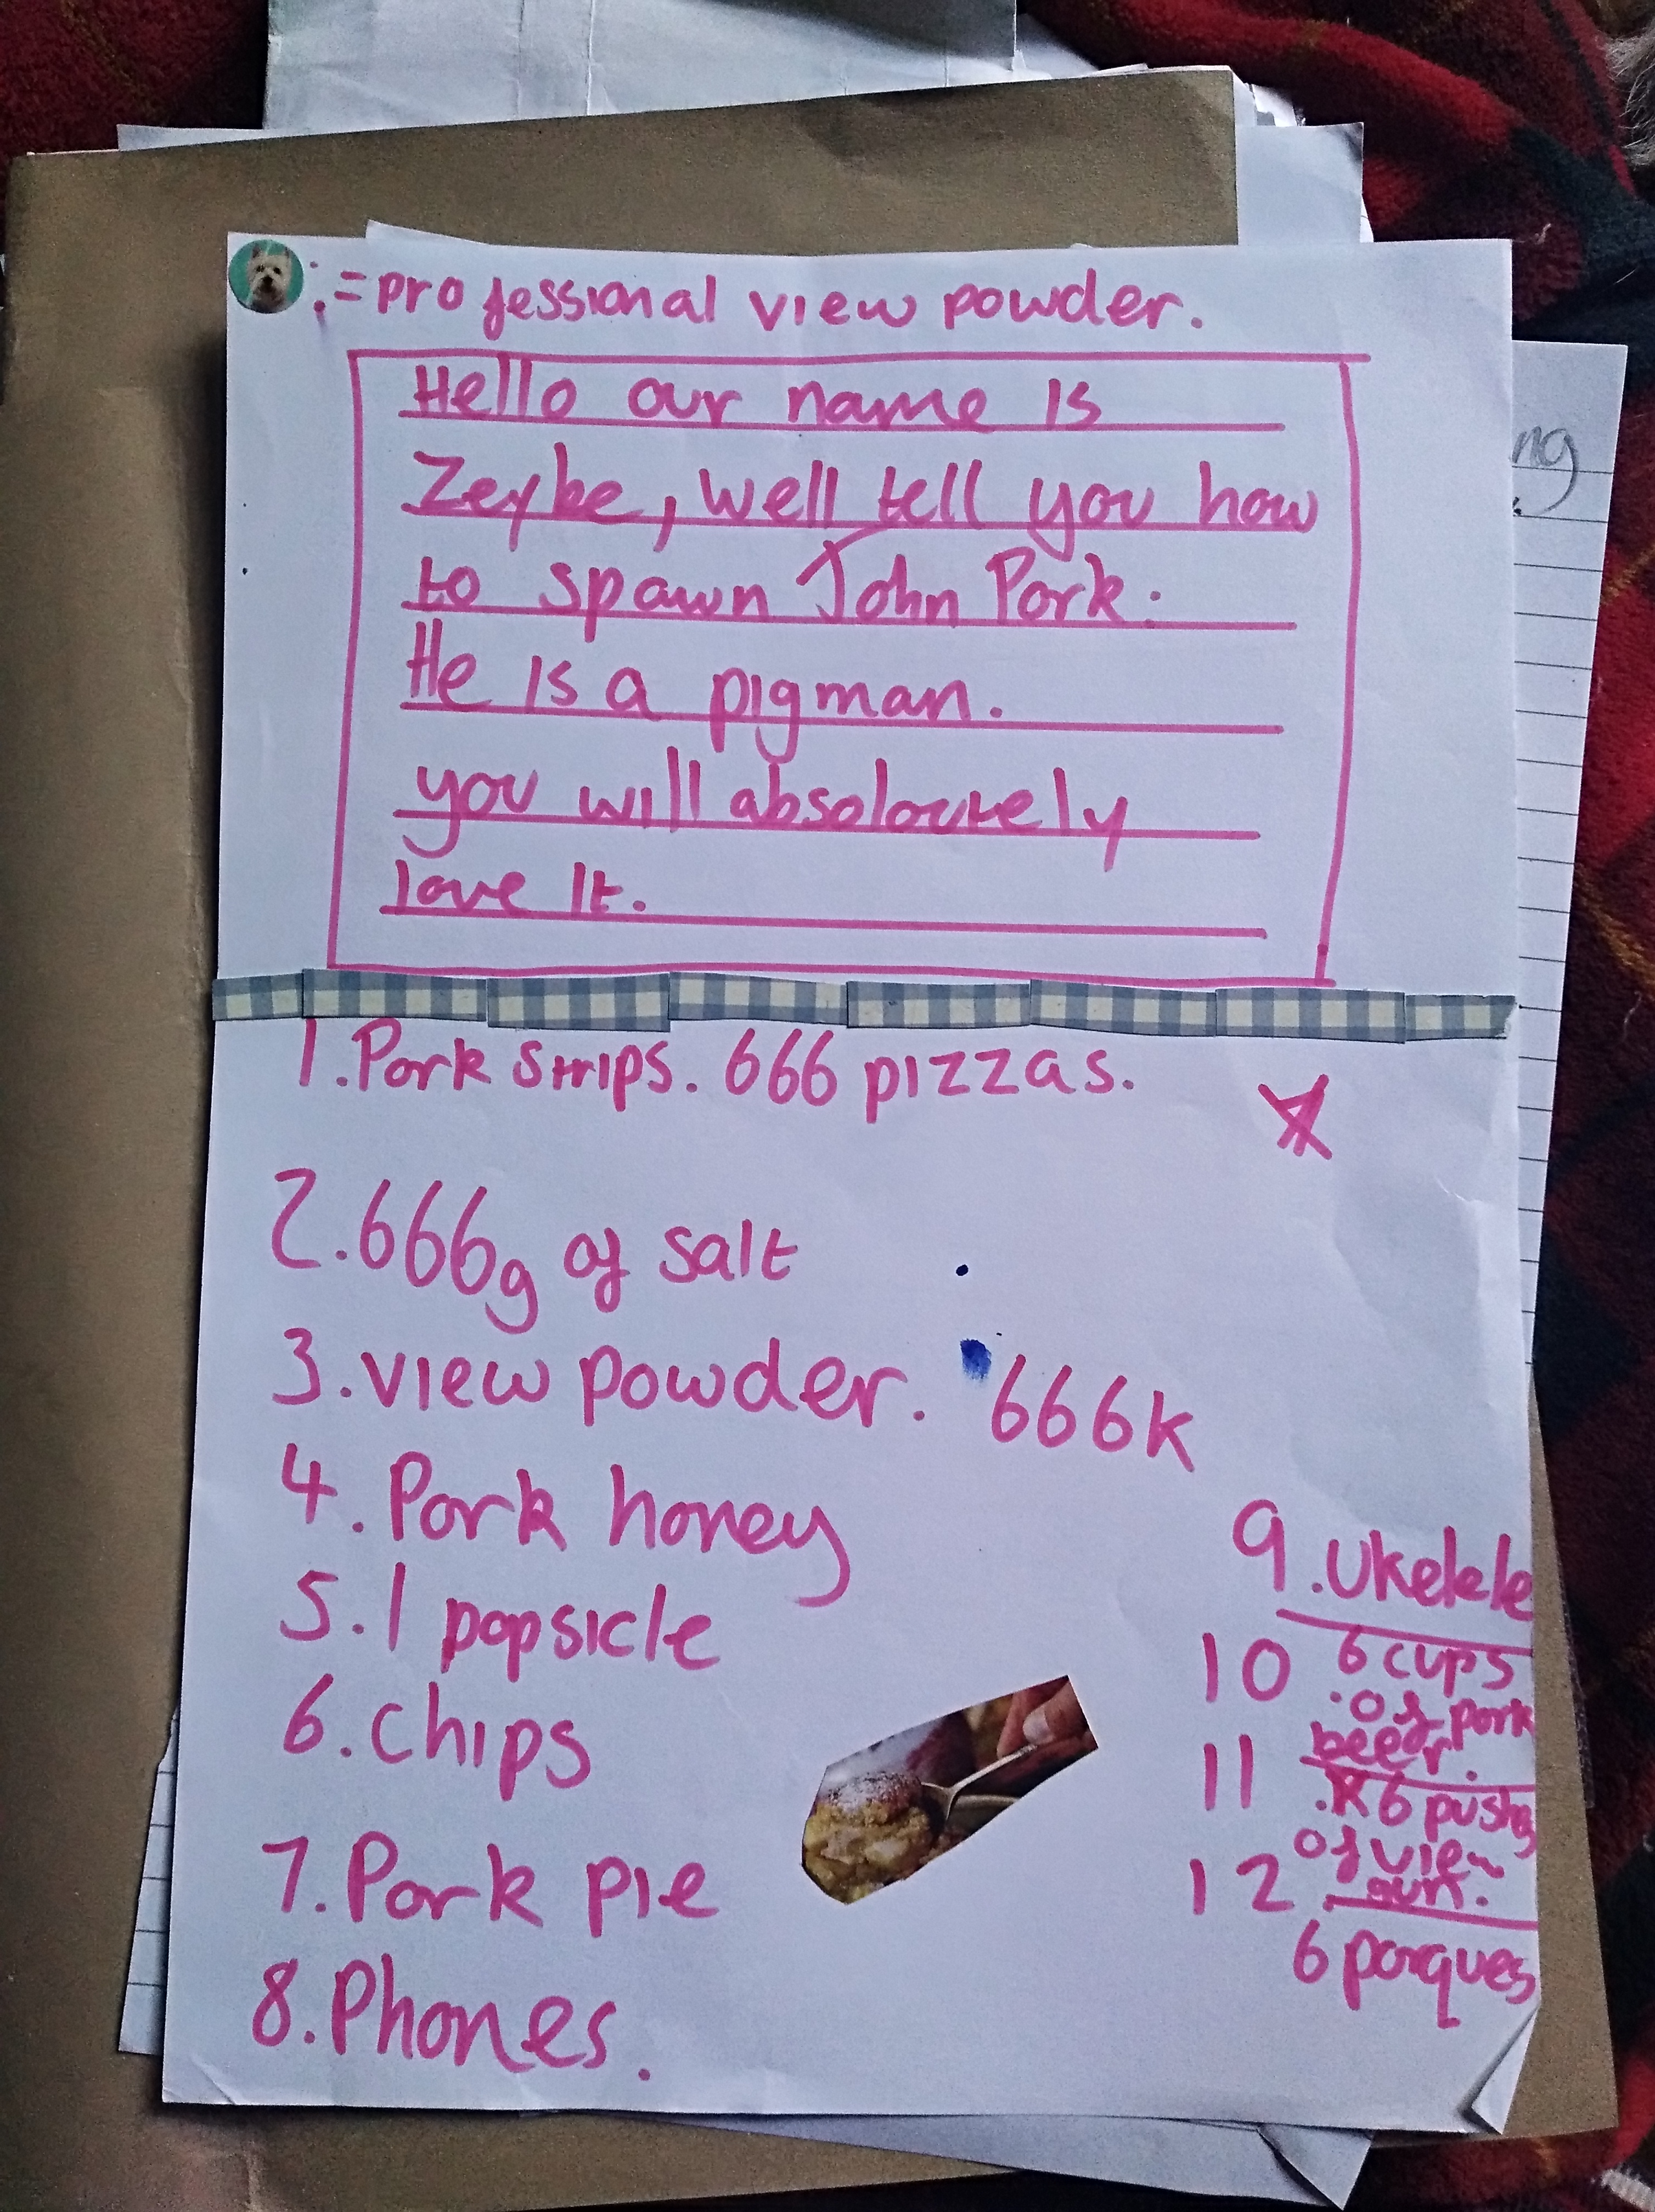 :=professional view powder.
Hello our name is
Zeybe, well tell you how
to spawn John Pork.
He is a pigman.
you will absoloutely
love it.
1.Pork strips. 666 pizzas.
2.666g of salt
3.view powder. 666k
4.Pork honey
5.1 popsicle
6.chips
7.Pork pie
8.Phones.
9.ukelele
10 6 cups
.of pork
beer.
11 .K6
of view
12
6 porques
ng